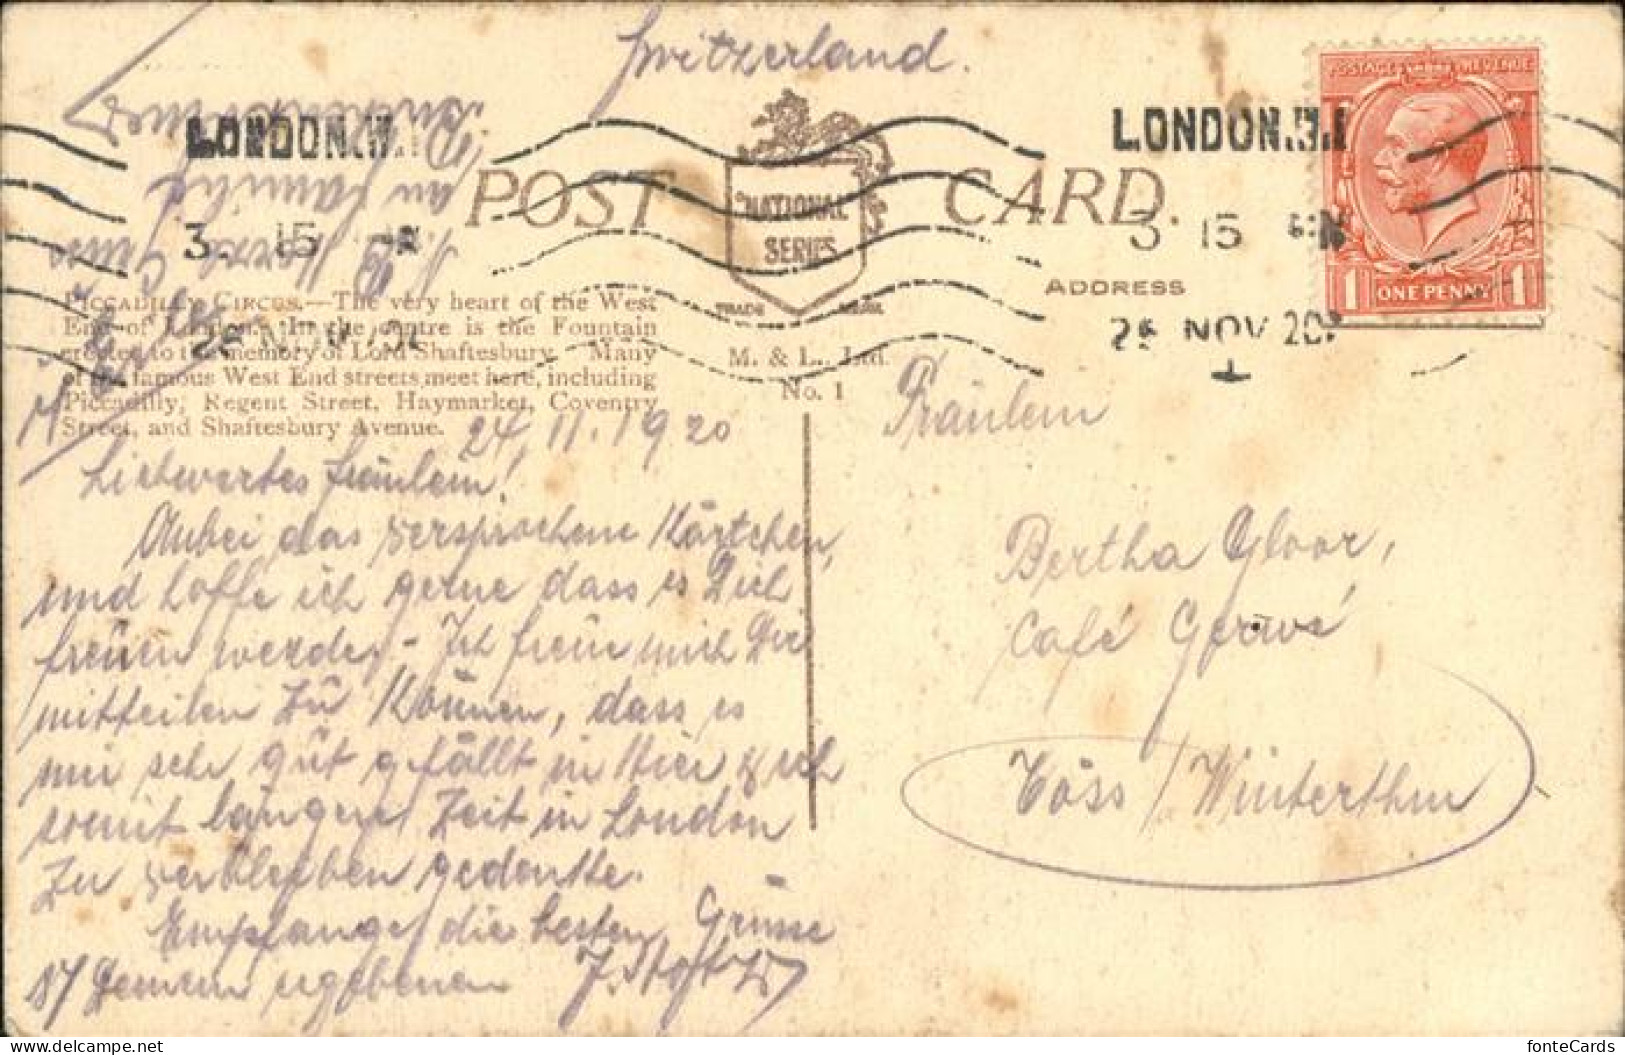 Switzerland.
LONDON.W.1
3. 15
26 NOV 20
LONDON.W.1
3 15
26 NOV 20
POSTAGE REVENUE
1 ONE PENNY 1
POST CARD.
NATIONAL
SERIES
TRADE MARK
M. & L., Ltd.
No. 1
ADDRESS
PICCADILLY CIRCUS.—The very heart of the West
End of London. In the centre is the Fountain
erected to the memory of Lord Shaftesbury. Many
of the famous West End streets meet here, including
Piccadilly, Regent Street, Haymarket, Coventry
Street, and Shaftesbury Avenue.
24.11.1920
Liebwertes Fräulein!
Anbei das versprochene Kärtchen,
und hoffe ich gerne dass es Dich
freuen werde,- Ich freue mich Dir
mitteilen zu können, dass es
mir sehr gut gefällt in Hier & ich
somit längere Zeit in London
zu verbleiben gedenke.
Empfange die besten Grüsse
Fräulein
Bertha Gloor,
Café Gerwé
Töss / Winterthur
N.B. Herzl. Grüss
an Familie
fonteCards